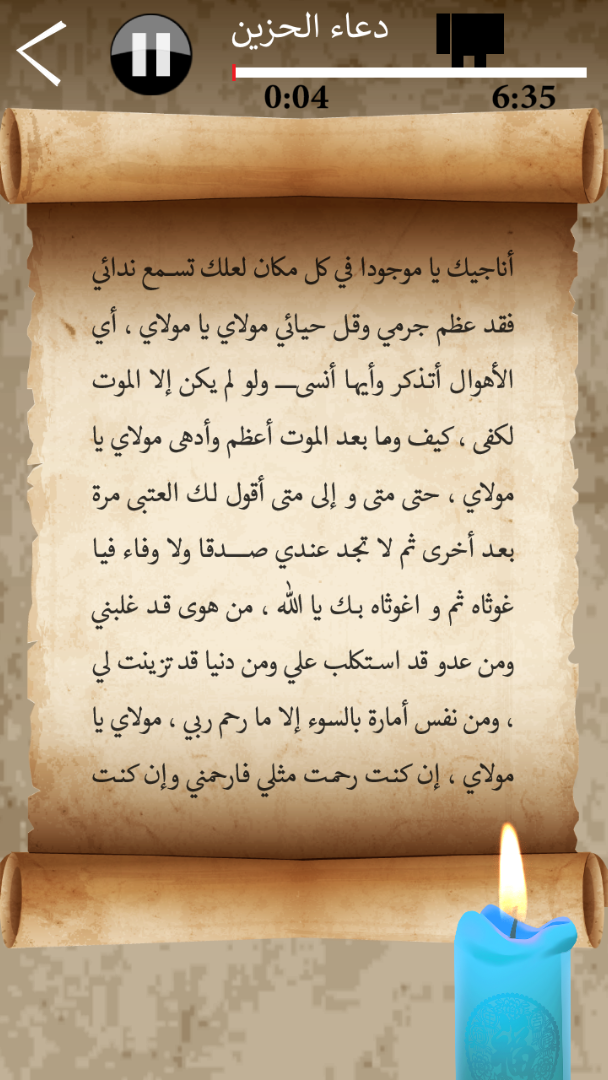 دعاء الحزين
0:04 6:35
أناجيك يا موجودا في كل مكان لعلك تسمع ندائي
فقد عظم جرمي وقل حيائي مولاي يا مولاي ، أي
الأهوال أتذكر وأيها أنسى ولو لم يكن إلا الموت
لكفى ، كيف وما بعد الموت أعظم وأدهى مولاي يا
مولاي ، حتى متى و إلى متى أقول لك العتبى مرة
بعد أخرى ثم لا تجد عندي صدقا ولا وفاء فيا
غوثاه ثم و اغوثاه بك يا الله ، من هوى قد غلبني
ومن عدو قد استكلب علي ومن دنيا قد تزينت لي
، ومن نفس أمارة بالسوء إلا ما رحم ربي ، مولاي يا
مولاي ، إن كنت رحمت مثلي فارحمني وإن كنت